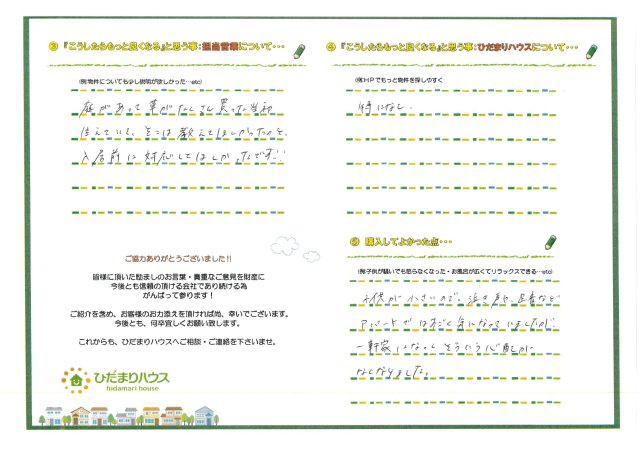 ③『こうしたらもっと良くなる』と思う事:担当営業について・・・
(例)物件についても少し説明が欲しかった…etc)
庭があって草がたくさん 買った当初
生えていて、そこは教えてほしかったのと、
入居前に対応してほしかったです!!
ご協力ありがとうございました!!
皆様に頂いた励ましのお言葉・貴重なご意見を財産に
今後とも信頼の頂ける会社であり続ける為
がんばって参ります!
ご紹介を含め、お客様のお力添えを頂ければ尚、幸いでございます。
今後とも、何卒宜しくお願い致します。
これからも、ひだまりハウスへご相談・ご連絡を下さいませ。
ひだまりハウス
hidamari house
④『こうしたらもっと良くなる』と思う事:ひだまりハウスについて・・・
(例)HPでもっと物件を探しやすく
特になし
⑤ 購入してよかった点…
(例)子供が騒いでも怒らなくなった・お風呂が広くてリラックスできる…etc)
子供が小さいので、泣き声や、足音など
アパートではすごく気になっていましたが、
一軒家になってそういう心配が
なくなりました。